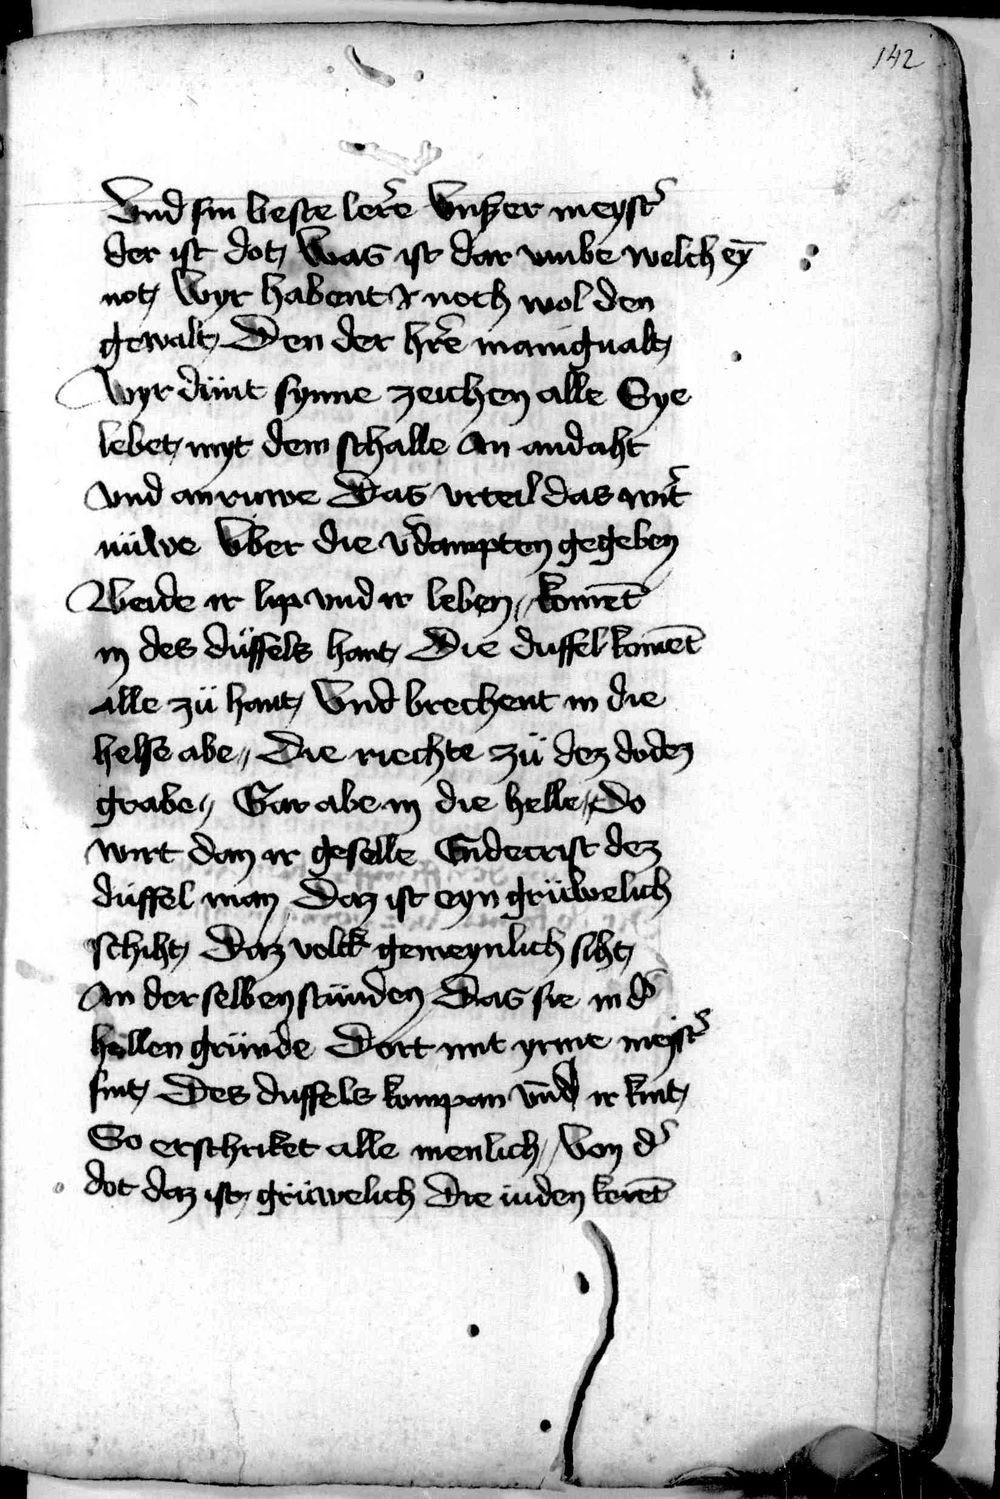 142
Vnd sin beste lere͛ Vnßer meyst͛
der ist dot, Was ist dar vmbe welch ey̅
not, Wyr habent noch wol den
gewalt, Den der hr͛e manigualt,
Wyr dünt synne zeichen alle Sye
lebet, myt dem schalle An andaht
vnd an ruwe Das vrteil das wirt͛
nüwe Vber die v͛dampten gegeben
Beide ir lip vnd ir leben,, kome̅t
in des düffels hant, Die duffel kome̅t
alle zü hant, Vnd brechent in die
helse abe,, Die riechte zü dez dodez
grabe,, Gar abe in die helle,, Do
wirt dan ir geselle Endecrist dez
düffel man Daz ist eyn grüwelich
schiht, Daz volck gemeynlich siht,
An der selben stünden Das sie in d͛
hellen gründe Dort mit yrme meyst͛
sint, Des duffels kompan vn̅d ir kint,
So erschriket alle menlich, Von d͛
dot daz ist, grüwelich Die iuden kere̅t